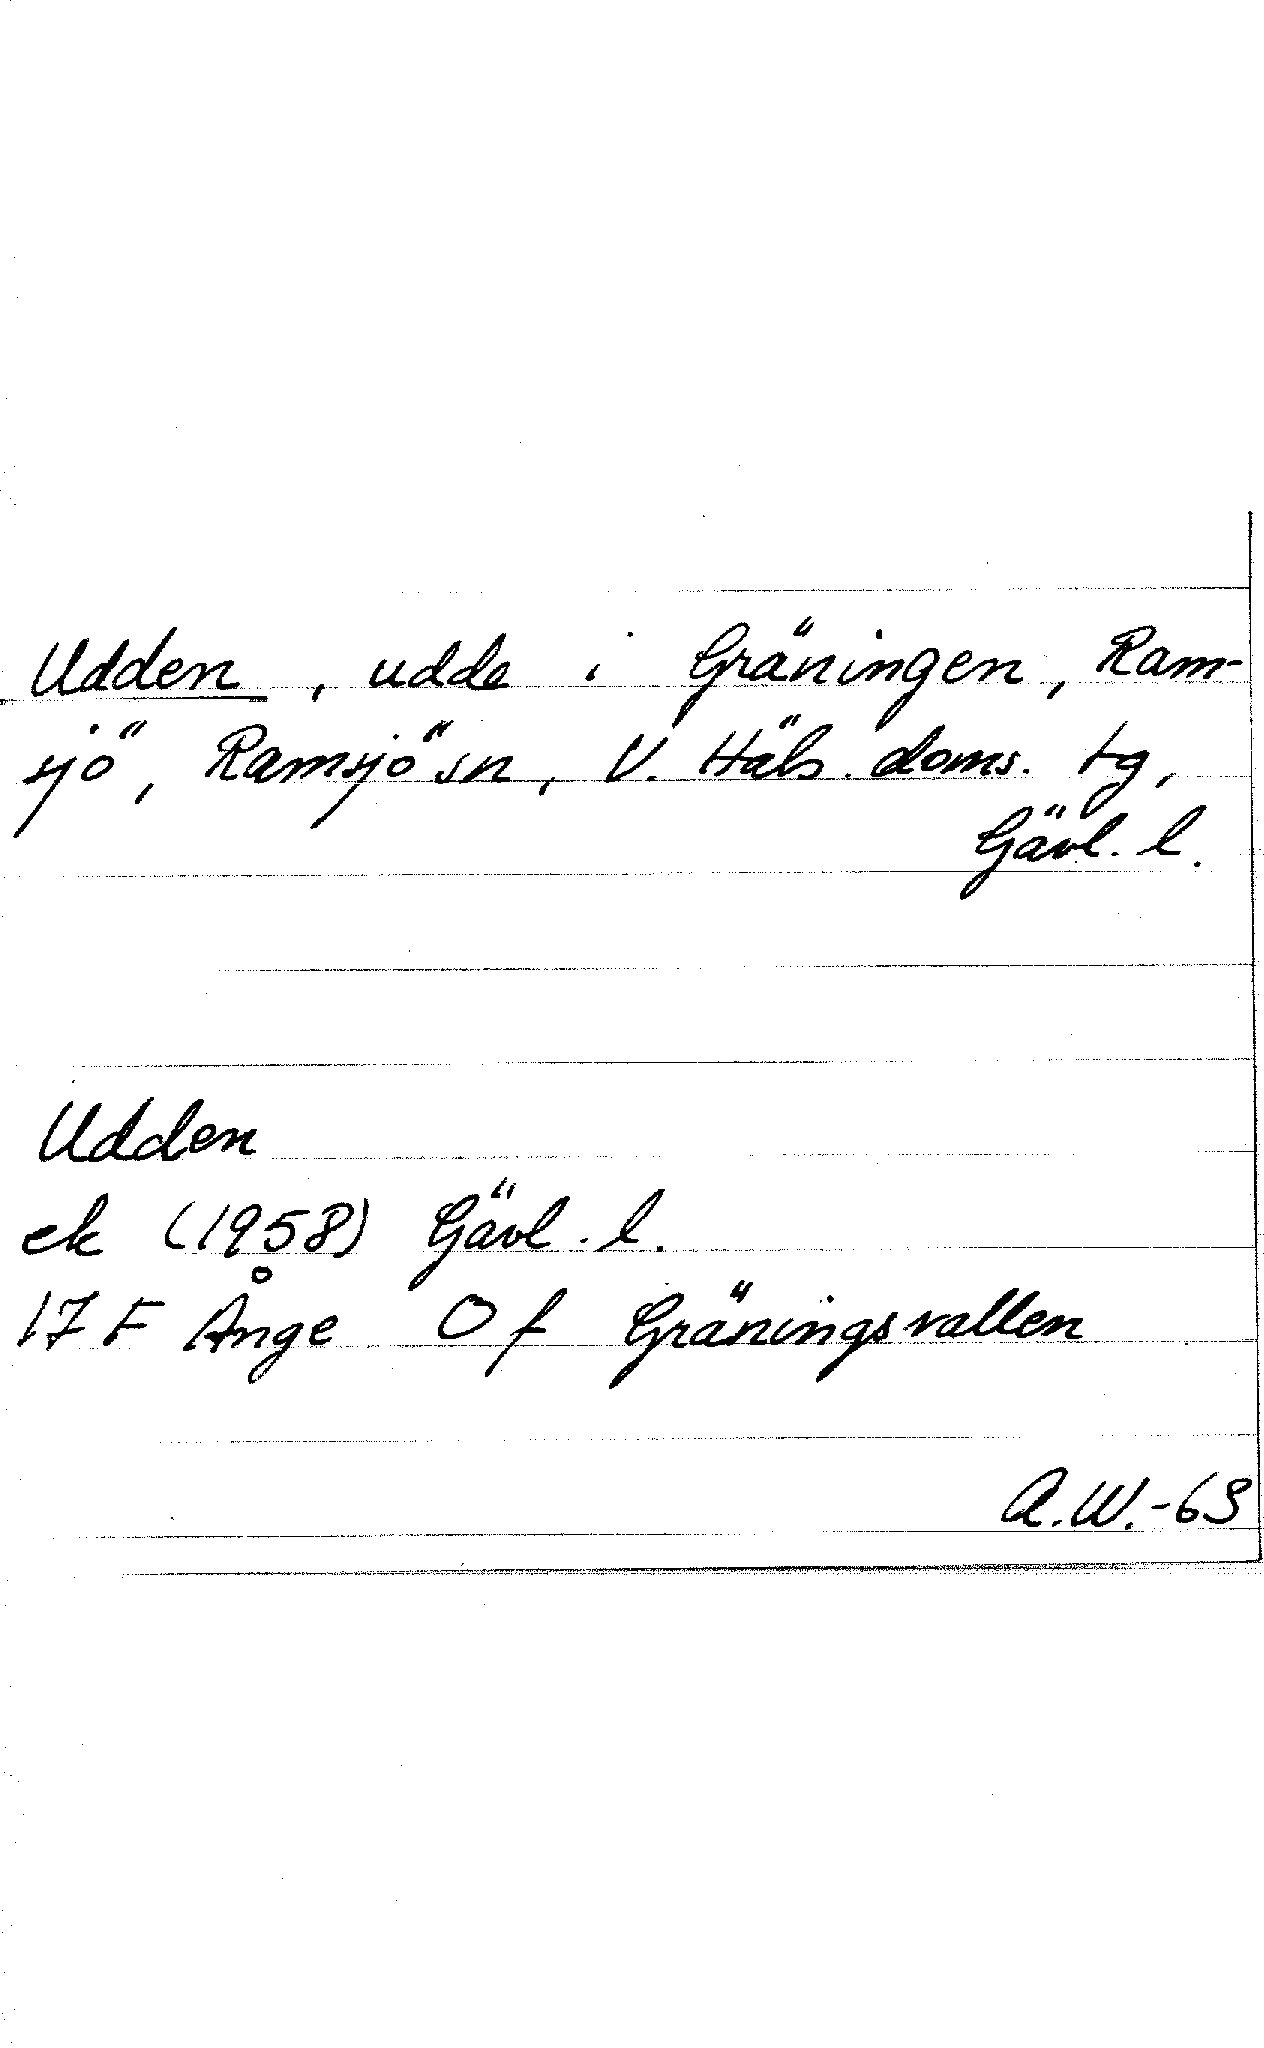 Udden, udde i Gräningen, Ram-
sjö, Ramsjö sn, V. Häls. doms. tg,
Gävl. l.
Udden
ek (1958) Gävl. l.
17 F Ånge 0 f Gräningsvallen
A.W.-63